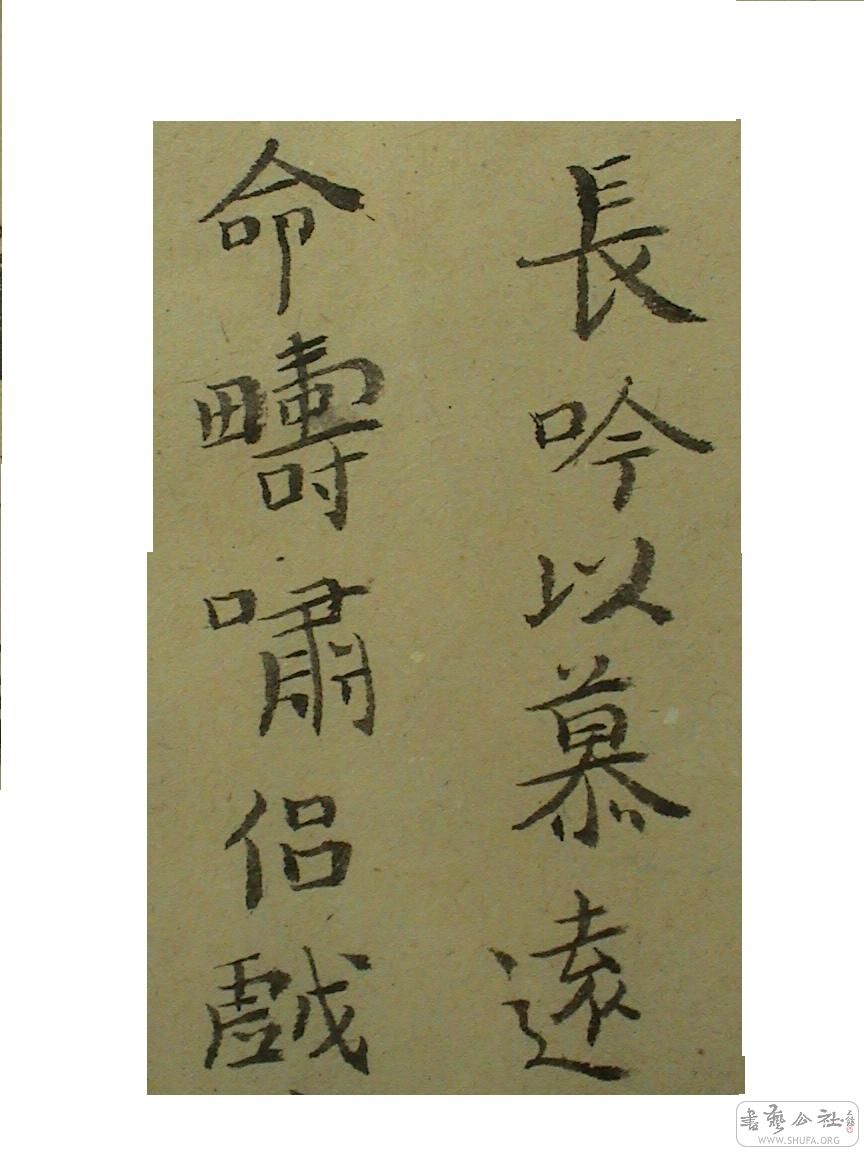 長吟以慕遠
命疇嘯侶戲
書藝公社
WWW.SHUFA.ORG